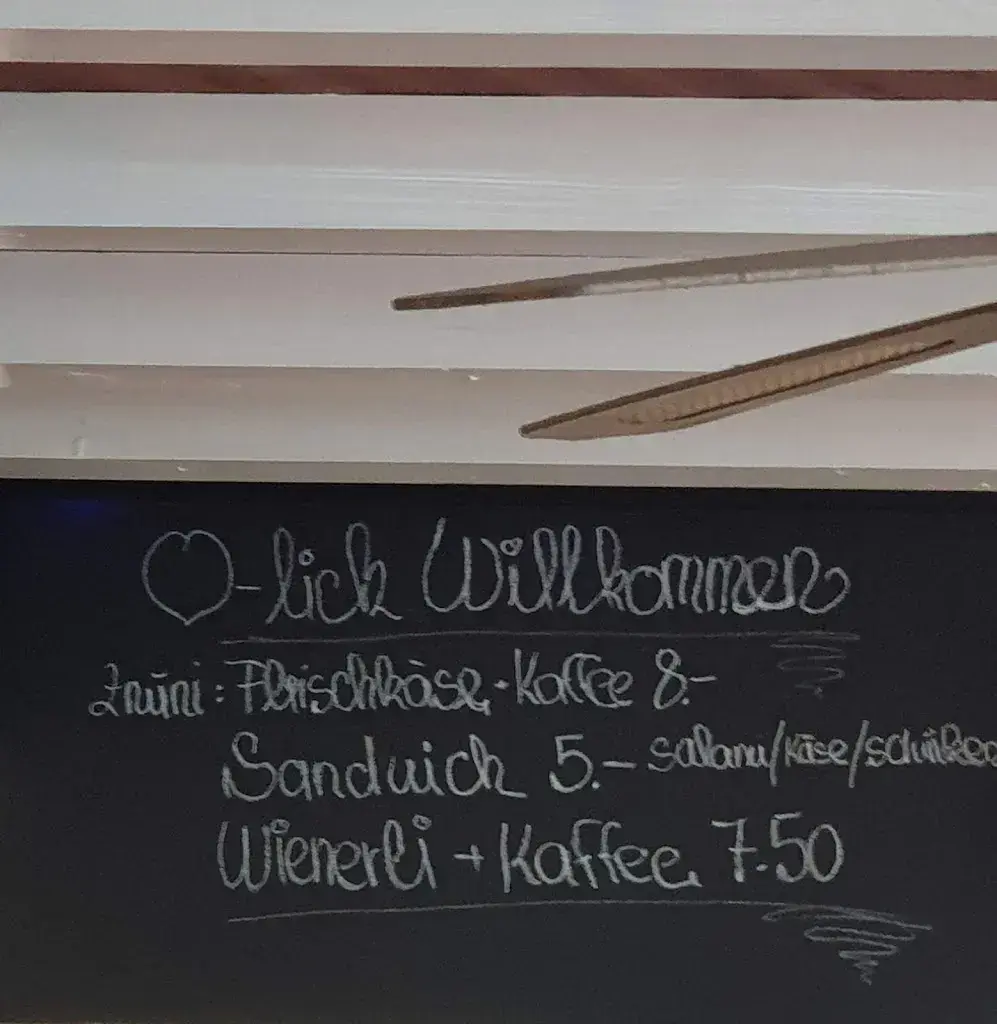 ♡-lich Willkommen
Znüni: Fleischkäse + Kaffee 8.-
Sandwich 5.- Salami/Käse/Schinken
Wienerli + Kaffee 7.50